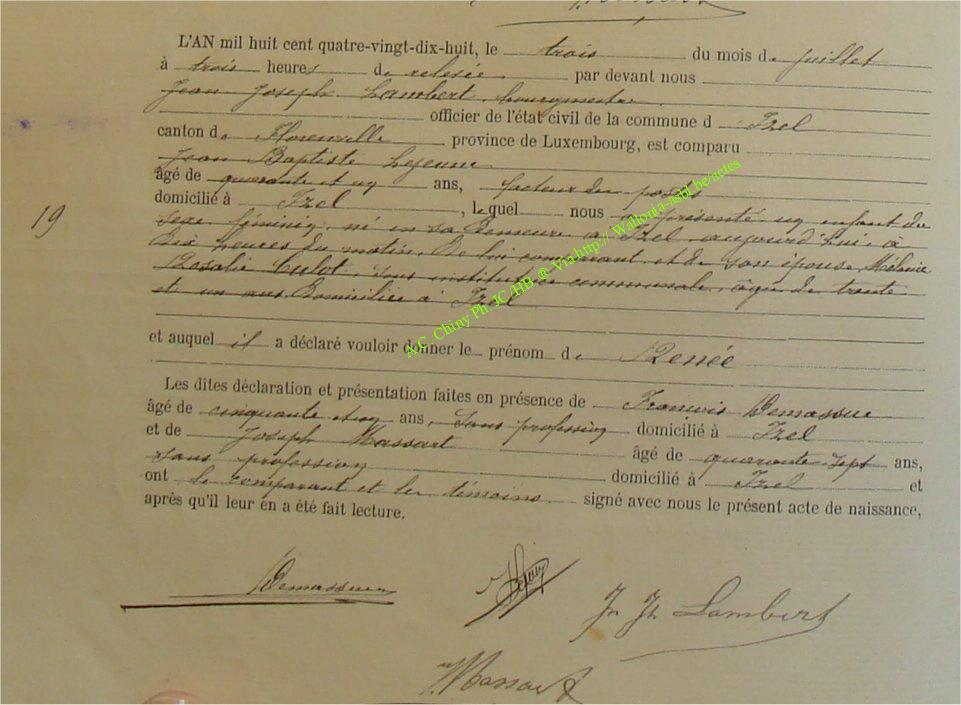 L'AN mil huit cent quatre-vingt-dix-huit, le trois du mois de juillet
à trois heures de relevée par devant nous
Jean Joseph Lambert, bourgmestre
officier de l'état civil de la commune d Izel
canton de Florenville province de Luxembourg, est comparu
Jean Baptiste Lejeune
âgé de quarante et un ans, facteur des postes
domicilié à Izel, lequel nous a présenté un enfant du
19
sexe féminin, né en sa demeure à Izel, aujourd'hui à
dix heures du matin, de lui comparant, et de son épouse, Mélanie
Rosalie Culot, sous institutrice communale, âgée de trente
et un ans, domiciliée à Izel
et auquel il a déclaré vouloir donner le prénom de Renée
Les dites déclaration et présentation faites en présence de François Demasse
âgé de cinquante et un ans, sans profession domicilié à Izel
et de Joseph Massart âgé de quarante-sept ans,
sans profession domicilié à Izel et
ont le comparant et les témoins signé avec nous le présent acte de naissance,
après qu'il leur en a été fait lecture.
A.C. Chiny Ph. JC/HB @ Via http:// Wallonia-asbl.be/actes
Lejeune
Jn Jh Lambert
Massart